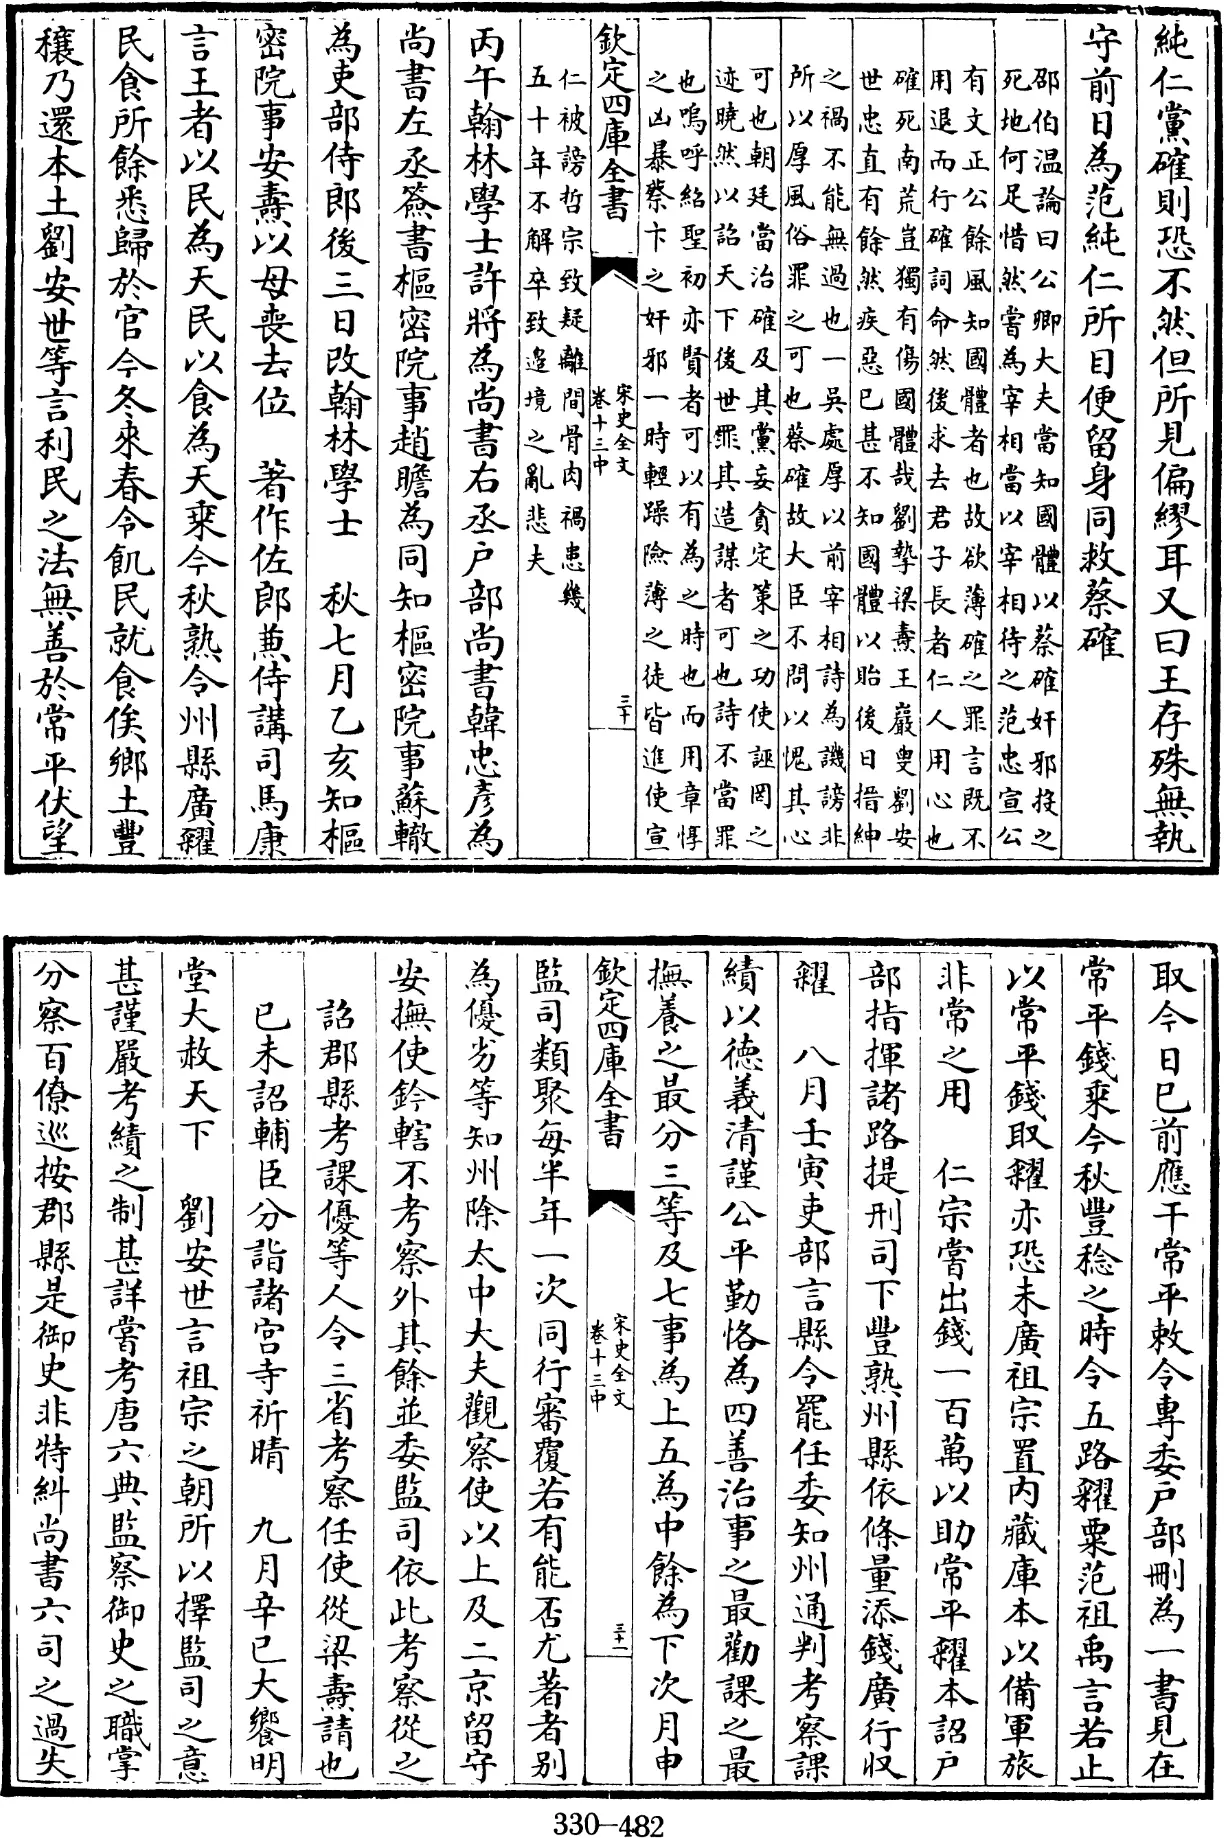 純仁黨確則恐不然但所見偏繆耳又曰王存殊無執
守前日為范純仁所目便留身同救蔡確
邵伯温論曰公卿大夫當知國體以蔡確奸邪投之
死地何足惜然嘗為宰相當以宰相待之范忠宣公
有文正公餘風知國體者也故欲薄確之罪言既不
用退而行確詞命然後求去君子長者仁人用心也
確死南荒豈獨有傷國體哉劉摯梁燾王巖叟劉安
世忠直有餘然疾惡已甚不知國體以貽後日搢紳
之禍不能無過也一吳處厚以前宰相詩為譏謗非
所以厚風俗罪之可也蔡確故大臣不問以愧其心
可也朝廷當治確及其黨妄貪定策之功使誣罔之
迹曉然以詔天下後世罪其造謀者可也詩不當罪
也嗚呼紹聖初亦賢者可以有為之時也而用章惇
之凶暴蔡卞之奸邪一時輕躁險薄之徒皆進使宣
仁被謗哲宗致疑離間骨肉禍患幾
五十年不解卒致邉境之亂悲夫
欽定四庫全書
宋史全文
卷十三中
三十
丙午翰林學士許將為尚書右丞户部尚書韓忠彦為
尚書左丞簽書樞密院事趙瞻為同知樞密院事蘇轍
為吏部侍郎後三日改翰林學士　秋七月乙亥知樞
密院事安燾以母喪去位　著作佐郎兼侍講司馬康
言王者以民為天民以食為天乗今秋熟令州縣廣糴
民食所餘悉歸於官今冬來春令飢民就食俟鄉土豐
穰乃還本土劉安世等言利民之法無善於常平伏望
取今日已前應干常平敕令専委户部刪為一書見在
常平錢乗今秋豐稔之時令五路糴粟范祖禹言若止
以常平錢取糴亦恐未廣祖宗置内藏庫本以備軍旅
非常之用　仁宗嘗出錢一百萬以助常平糴本詔户
部指揮諸路提刑司下豐熟州縣依條量添錢廣行収
糴　八月壬寅吏部言縣令罷任委知州通判考察課
績以德義清謹公平勤恪為四善治事之最勸課之最
撫養之最分三等及七事為上五為中餘為下次月申
欽定四庫全書
宋史全文
卷十三中
三十一
監司類聚每半年一次同行審覆若有能否尤著者别
為優劣等知州除太中大夫觀察使以上及二京留守
安撫使鈐轄不考察外其餘並委監司依此考察從之
詔郡縣考課優等人令三省考察任使從梁燾請也
已未詔輔臣分詣諸宫寺祈晴　九月辛已大饗明
堂大赦天下　劉安世言祖宗之朝所以擇監司之意
甚謹嚴考績之制甚詳嘗考唐六典監察御史之職掌
分察百僚巡按郡縣是御史非特糾尚書六司之過失
330-482